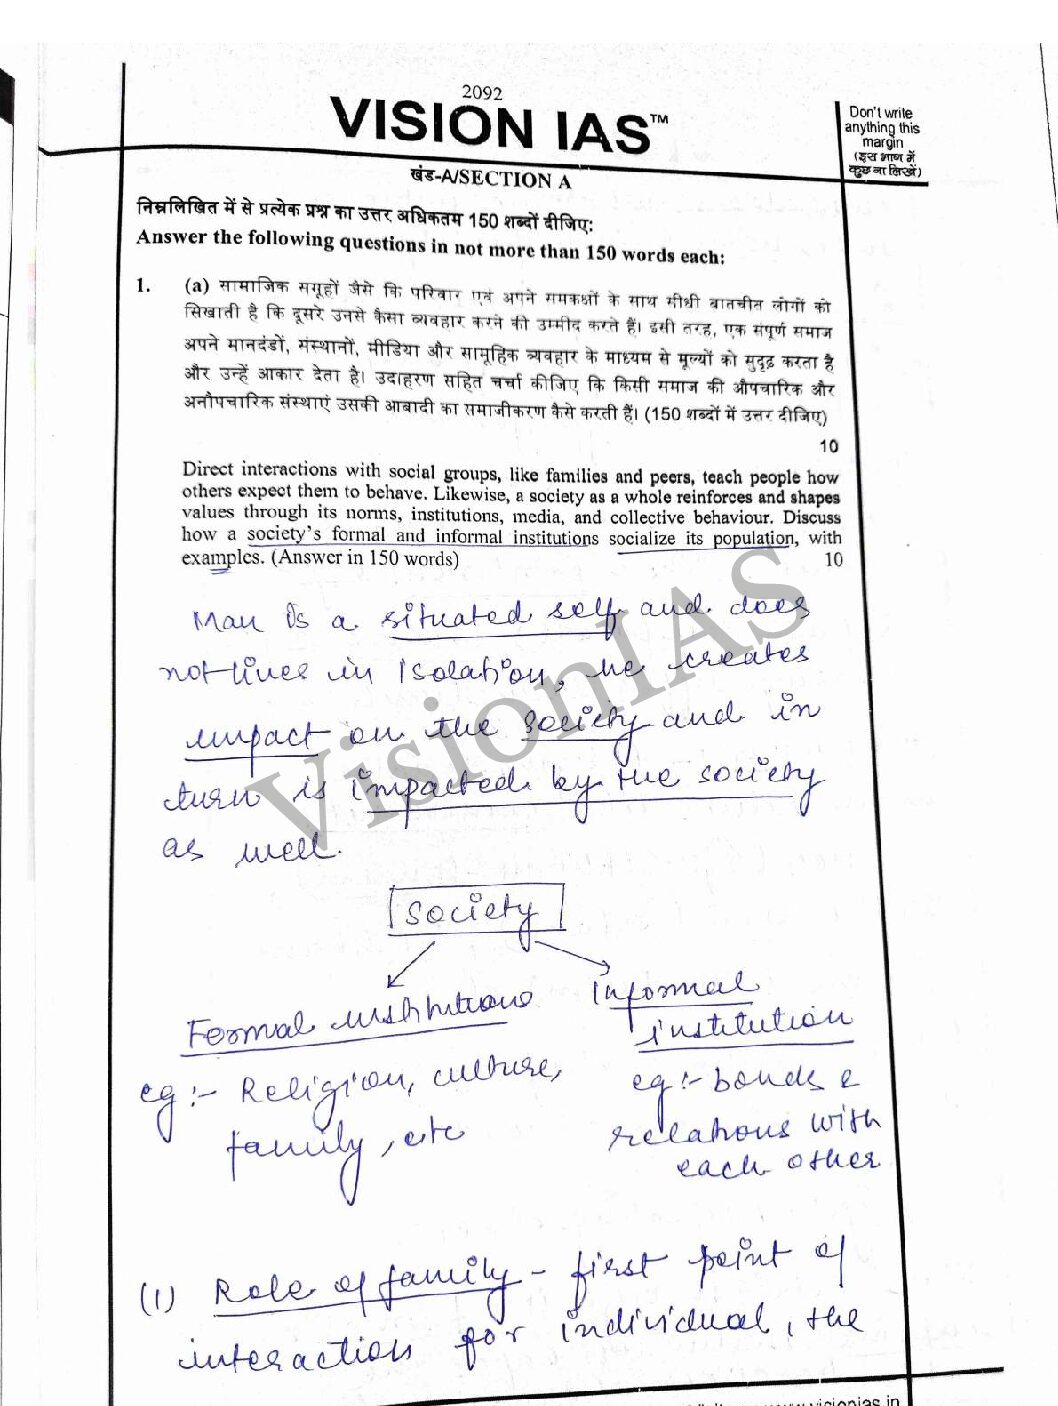 2092
VISION IAS™
Don't write
anything this
margin
(इस भाग में
कुछ ना लिखें)
खंड-A/SECTION A
निम्नलिखित में से प्रत्येक प्रश्न का उत्तर अधिकतम 150 शब्दों दीजिए:
Answer the following questions in not more than 150 words each:
1. (a) सामाजिक समूहों जैसे कि परिवार एवं अपने समकक्षों के साथ सीधी बातचीत लोगों को
सिखाती है कि दूसरे उनसे कैसा व्यवहार करने की उम्मीद करते हैं। इसी तरह, एक संपूर्ण समाज
अपने मानदंडों, संस्थानों, मीडिया और सामूहिक व्यवहार के माध्यम से मूल्यों को सुदृढ़ करता है
और उन्हें आकार देता है। उदाहरण सहित चर्चा कीजिए कि किसी समाज की औपचारिक और
अनौपचारिक संस्थाएं उसकी आबादी का समाजीकरण कैसे करती हैं। (150 शब्दों में उत्तर दीजिए)
10
Direct interactions with social groups, like families and peers, teach people how
others expect them to behave. Likewise, a society as a whole reinforces and shapes
values through its norms, institutions, media, and collective behaviour. Discuss
how a society's formal and informal institutions socialize its population, with
examples. (Answer in 150 words) 10
Man is a situated self and does
not lives in isolation, he creates
impact on the society and in
turn is impacted by the society
as well.
Society
Formal institutions
eg:- Religion, culture,
family, etc
Informal
institution
eg:- bonds &
relations with
each other
(1) Role of family - first point of
interaction for individual, the
VisionIAS